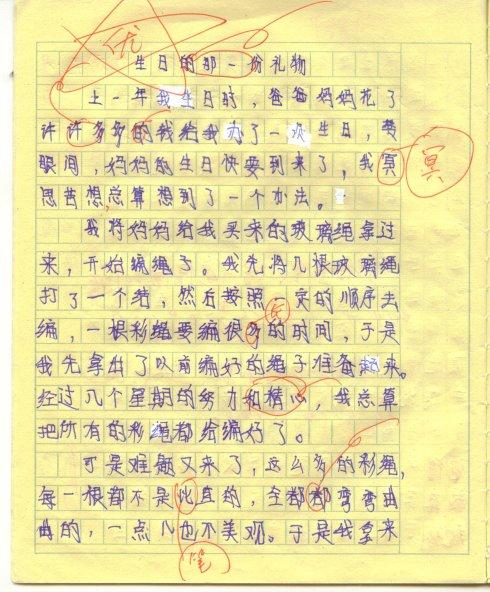 优
生日的那一份礼物
上一年我生日时，爸爸妈妈花了
许许多多的钱给我办了一次生日，转
眼间，妈妈的生日快要到来了，我冥
冥
思苦想，总算想到了一个办法。
我将妈妈给我买来的玻璃绳拿过
来，开始编绳了。我先将几根玻璃绳
打了一个结，然后按照一定的顺序去
编，一根彩绳要编很多的时间，于是
长
我先拿出了以前编好的绳子准备起来。
经过几个星期的努力和精心，我总算
把所有的彩绳都给编好了。
可是难题又来了，这么多的彩绳，
每一根都不是比直的，全都都弯弯曲
曲的，一点儿也不美观。于是我拿来
(笔)